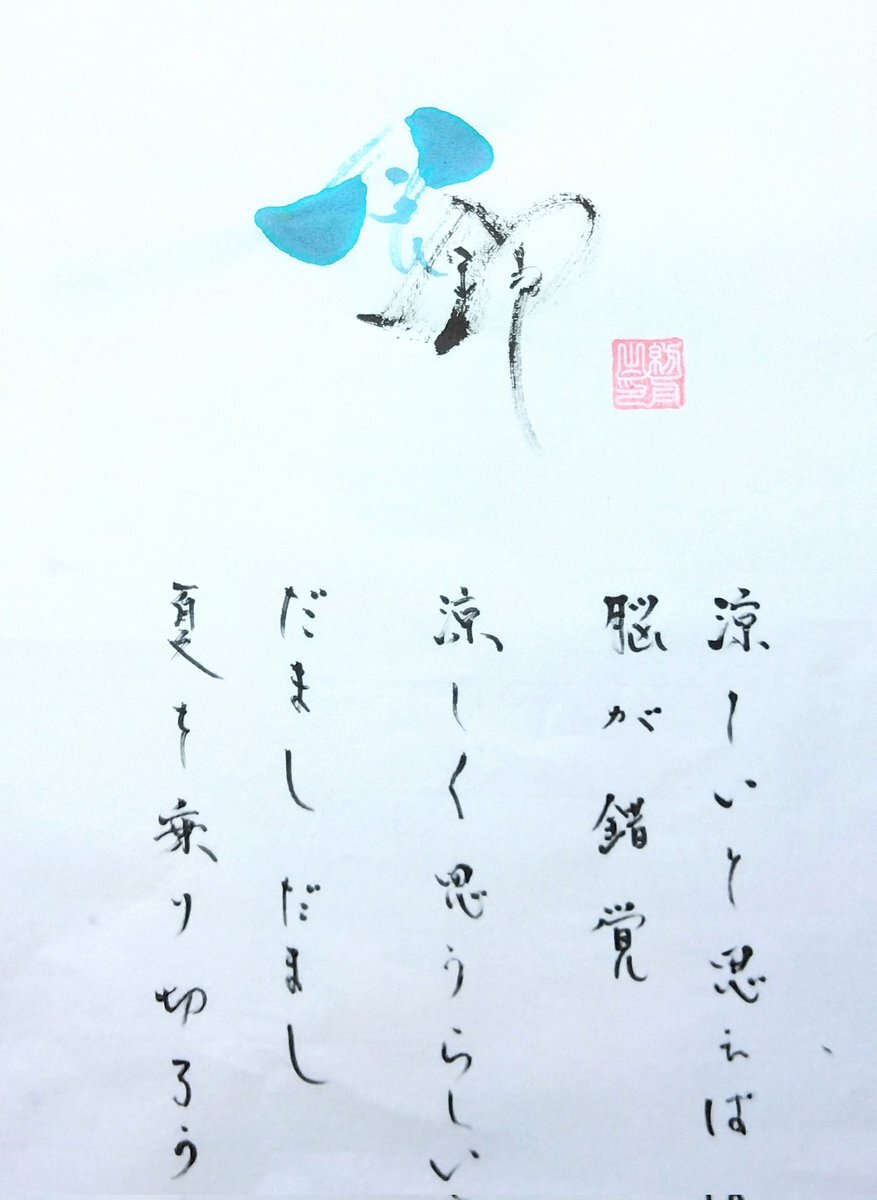 涼しいと思えば
脳が錯覚
涼しく思うらしい
だましだまし
夏を乗り切ろう